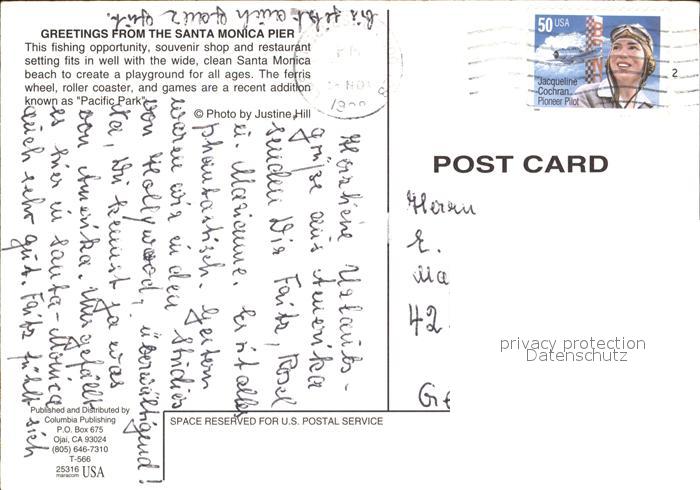 bis jetzt auch ganz gut.
GREETINGS FROM THE SANTA MONICA PIER
This fishing opportunity, souvenir shop and restaurant
setting fits in well with the wide, clean Santa Monica
beach to create a playground for all ages. The ferris
wheel, roller coaster, and games are a recent addition
known as "Pacific Park".
© Photo by Justine Hill
Herzliche Urlaubs-
grüße aus Amerika
senden Dir Fritz, Rosel
u. Marianne. Es ist alles
phantastisch. Gestern
waren wir in den Studios
von Hollywood, überwältigend!
Ja, Du kennst ja was
von Amerika. Uns gefällt
es hier in Santa-Monica
auch sehr gut. Fritz fühlt sich
50 USA
Jacqueline
Cochran
Pioneer Pilot
2
POST CARD
Herrn
E.
Ma
42
Ge
privacy protection
Datenschutz
Published and Distributed by
Columbia Publishing
P.O. Box 675
Ojai, CA 93024
(805) 646-7310
T-566
25316 USA
maracom
SPACE RESERVED FOR U.S. POSTAL SERVICE